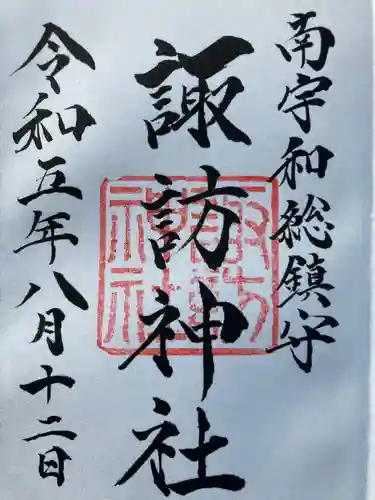 南宇和総鎮守
諏訪神社
令和五年八月十二日
諏訪
神社